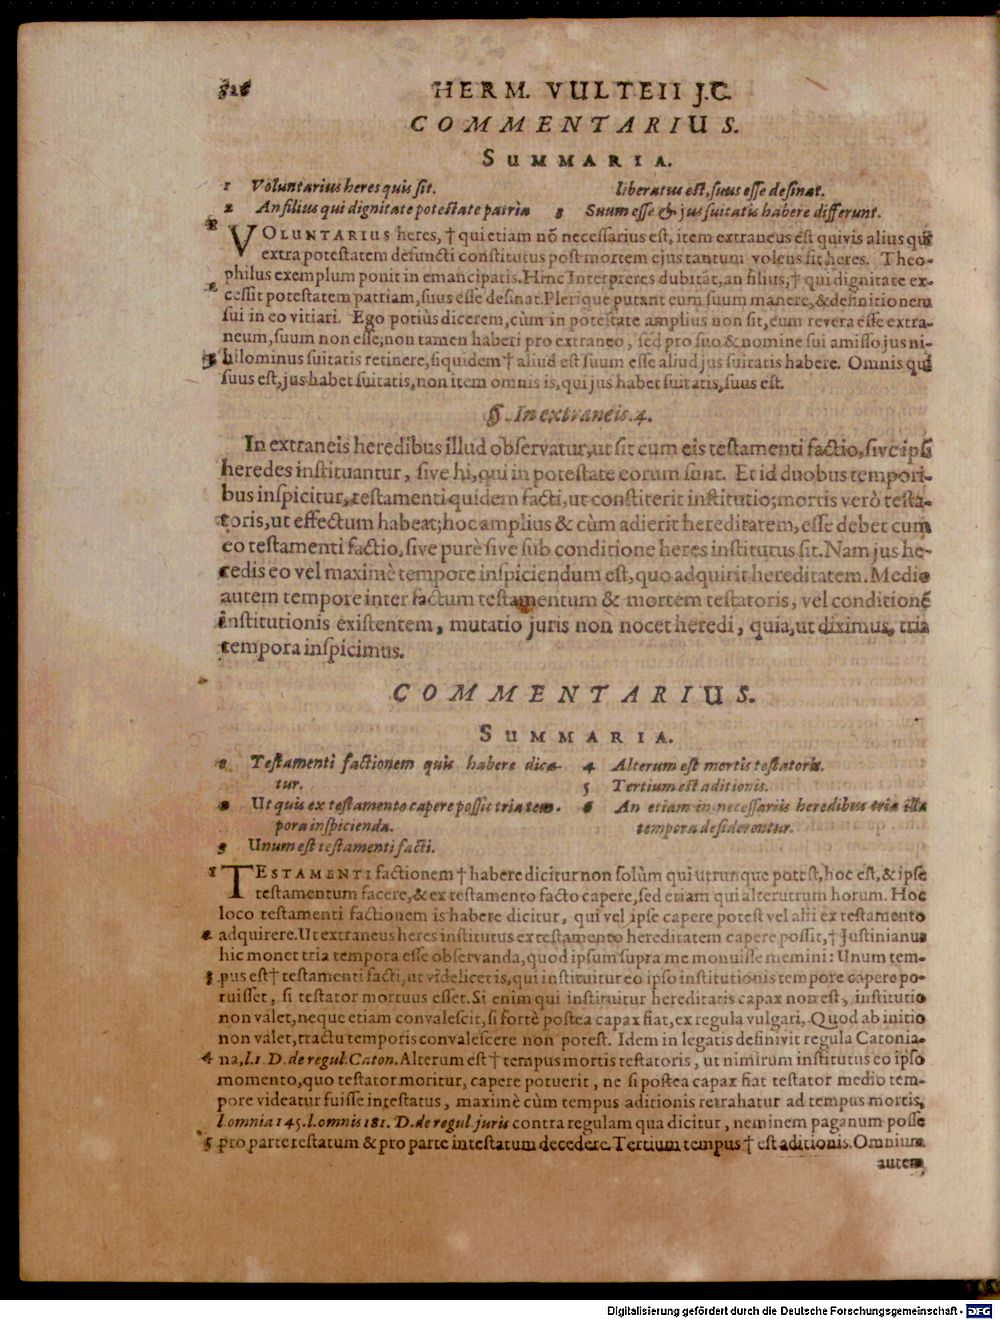 HERM. VULTEII J.C.
COMMENTARIUS.
SUMMARIA.
1 Voluntarius heres quis sit.
2 An filius qui dignitate potestate patria
liberatus est, suus esse desinat.
3 Suum esse & jus suitatis habere differunt.
VOLUNTARIUS heres, † qui etiam nõ necessarius est, item extraneus est quivis alius qui
extra potestatem defuncti constitutus post mortem ejus tantum volens fit heres. Theo-
philus exemplum ponit in emancipatis. Hinc Interpretes dubitãt, an filius, † qui dignitate ex-
cessit potestatem patriam, suus esse desinat. Plerique putant eum suum manere, & definitionem
sui in eo vitiari. Ego potiùs dicerem, cùm in potestate amplius non sit, eum revera esse extra-
neum, suum non esse, non tamen haberi pro extraneo, sed pro suo & nomine sui amisso jus ni-
3 hilominus suitatis retinere, siquidem † aliud est suum esse aliud jus suitatis habere. Omnis qui
suus est, jus habet suitatis, non item omnis is, qui jus habet suitatis, suus est.
§. In extraneis. 4.
In extraneis heredibus illud observatur, ut sit cum eis testamenti factio, sive ipsi
heredes instituantur, sive hi, qui in potestate eorum sunt. Et id duobus tempori-
bus inspicitur, testamenti quidem facti, ut constiterit institutio; mortis verò testa-
toris, ut effectum habeat; hoc amplius & cùm adierit hereditatem, esse debet cum
eo testamenti factio, sive purè sive sub conditione heres institutus sit. Nam jus he-
redis eo vel maximè tempore inspiciendum est, quo adquirit hereditatem. Medio
autem tempore inter factum testamentum & mortem testatoris, vel conditionem
institutionis existentem, mutatio juris non nocet heredi, quia, ut diximus, tria
tempora inspicimus.
COMMENTARIUS.
SUMMARIA.
1 Testamenti factionem quis habere dica-
tur.
2 Ut quis ex testamento capere possit tria tem-
pora inspicienda.
3 Unum est testamenti facti.
4 Alterum est mortis testatoris.
5 Tertium est aditionis.
6 An etiam in necessariis heredibus tria illa
tempora desiderentur.
1 TESTAMENTI factionem † habere dicitur non solùm qui utrunque potest, hoc est, & ipse
testamentum facere, & ex testamento facto capere, sed etiam qui alterutrum horum. Hoc
loco testamenti factionem is habere dicitur, qui vel ipse capere potest vel alii ex testamento
2 adquirere. Ut extraneus heres institutus ex testamento hereditatem capere possit, † Justinianus
hic monet tria tempora esse observanda, quod ipsum supra me monuisse memini: Unum tem-
3 pus est † testamenti facti, ut videlicet is, qui instituitur eo ipso institutionis tempore capere po-
tuisset, si testator mortuus esset. Si enim qui instituitur hereditatis capax non est, institutio
non valet, neque etiam convalescit, si fortè postea capax fiat, ex regula vulgari, Quod ab initio
non valet, tractu temporis convalescere non potest. Idem in legatis definivit regula Catonia-
4 na, l. 1. D. de regul. Caton. Alterum est † tempus mortis testatoris, ut nimirum institutus eo ipso
momento, quo testator moritur, capere potuerit, ne si postea capax fiat testator medio tem-
pore videatur fuisse intestatus, maximè cùm tempus aditionis retrahatur ad tempus mortis,
l. omnia 145. l. omnis 181. D. de regul. juris contra regulam qua dicitur, neminem paganum posse
5 pro parte testatum & pro parte intestatum decedere. Tertium tempus † est aditionis. Omnium
autem
Digitalisierung gefördert durch die Deutsche Forschungsgemeinschaft - DFG